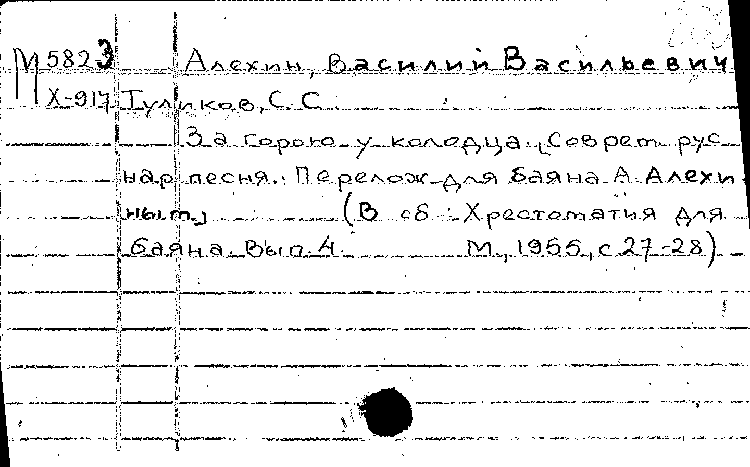 М 5823 Алехин, Василий Васильевич
X-917 Туликов, С. С.
За горою у колодца. [Соврем. рус.
нар. песня.] Перелож. для баяна А. Алехи-
ным.] (В сб.: Хрестоматия для
баяна. Вып. 4. М., 1955, с. 27-28)